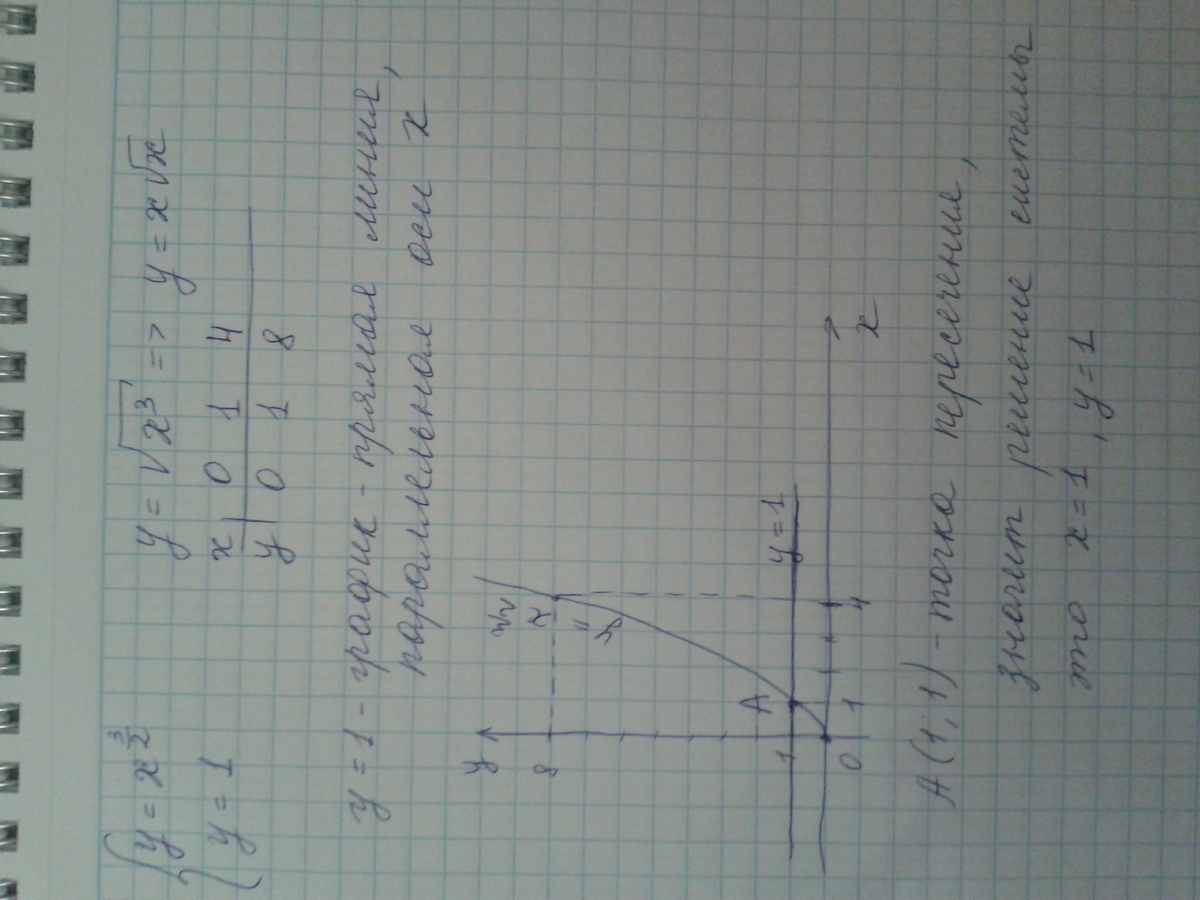 { y = x^{3/2}
y = 1
y = √x³ => y = x√x
x | 0 1 4
y | 0 1 8
y = 1 - график - прямая линия,
параллельная оси x
y
8
y = x^{3/2}
A
1
y = 1
0 1 4
x
A (1; 1) - точка пересечения,
значит решение системы
это x = 1, y = 1